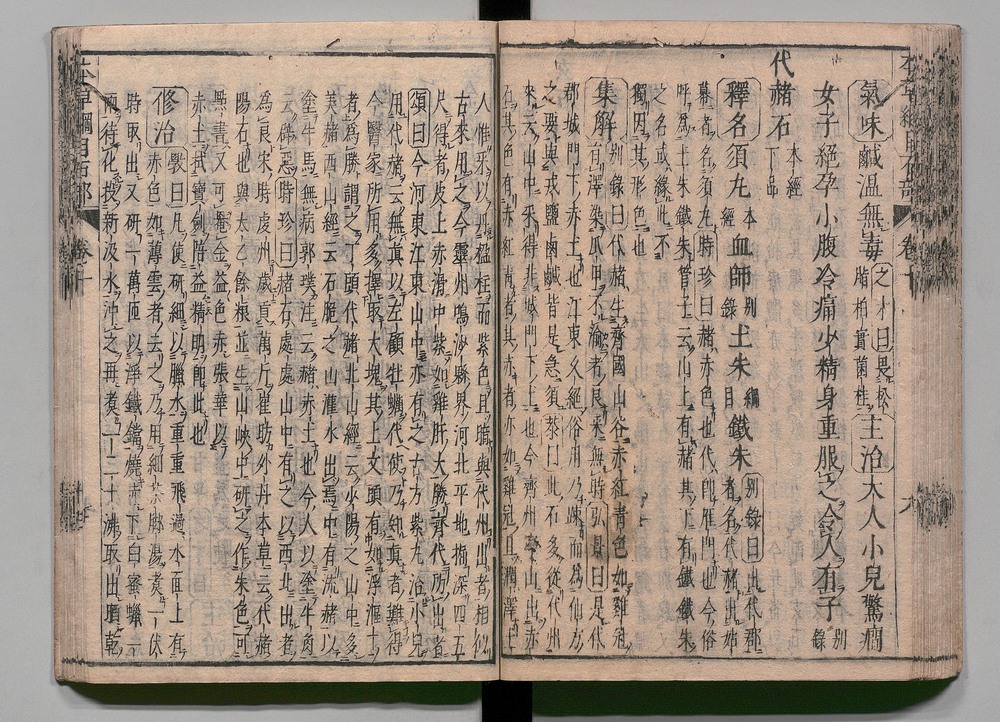 氣味鹹溫無毒之才曰畏松脂柏實菌桂主治大人小兒驚癎
女子絕孕小腹冷痛少精身重服之令人有子別錄
代赭石本經下品
釋名須丸本經血師別錄土朱綱目鐵朱別錄曰出代郡
者名代赭出姑
幕者名須丸時珍曰赭赤色也代即雁門也今俗
呼爲土朱鐵朱管子云山上有赭其下有鐵鐵朱
之名或緣此不
獨因其形色也
集解別錄曰代赭生齊國山谷赤紅青色如雞冠
有澤染爪甲不渝者良采無時弘景曰是代
郡城門下赤土也江東久絕俗用乃疎而爲仙方
之要與戎鹽鹵鹹皆是急須恭曰此石多從代州
來云山中采得非城門下土也今齊州亭山出赤
石其色有赤紅青者其赤者亦如雞冠且潤澤土
人惟采以丹楹柱而紫色且暗與代州出者相似
古來用之今靈州鳴沙縣界河北平地掘深四五
尺得者皮上赤滑中紫如雞肝大勝齊代所出者
頌曰今河東江東山中亦有之古方紫丸治小兒
用代赭云無眞以左顧牡蠣代使乃知眞者難得
今醫家所用多擇取大塊其上文頭有如浮漚丁
者爲勝謂之丁頭代赭北山經云少陽之山中多
美赭西山經云石脆之山灌水出焉中有流赭以
塗牛馬無病郭璞注云赭赤土也今人以塗牛角
云辟惡時珍曰赭石處處山中有之以西北出者
爲良宋時虔州歲貢萬斤崔昉外丹本草云代赭
陽石也與太乙餘糧並生山峽中研之作朱色可
點書又可罨金益色赤張華以
赤土拭寶劍陪益精明即此也
修治斅曰凡使研細以臘水重重飛過水面上有
赤色如薄雲者去之乃用細茶脚湯煑一伏
時取出又研一萬匝以浄鐵鐺燒赤下白蜜蠟一
兩待化投新汲水沖之再煑一二十沸取出晒乾